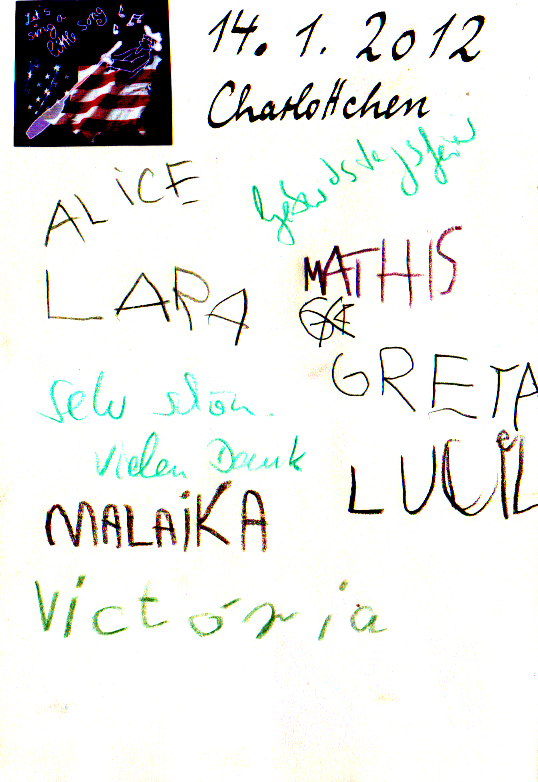 Let's
sing a
little song
14. 1. 2012
Charlottchen
Geburtstagsfeier
ALiCE
MATHIS
LARA
GRETA
Sehr schön.
Vielen Dank
LUCiL
MALAiKA
Victória